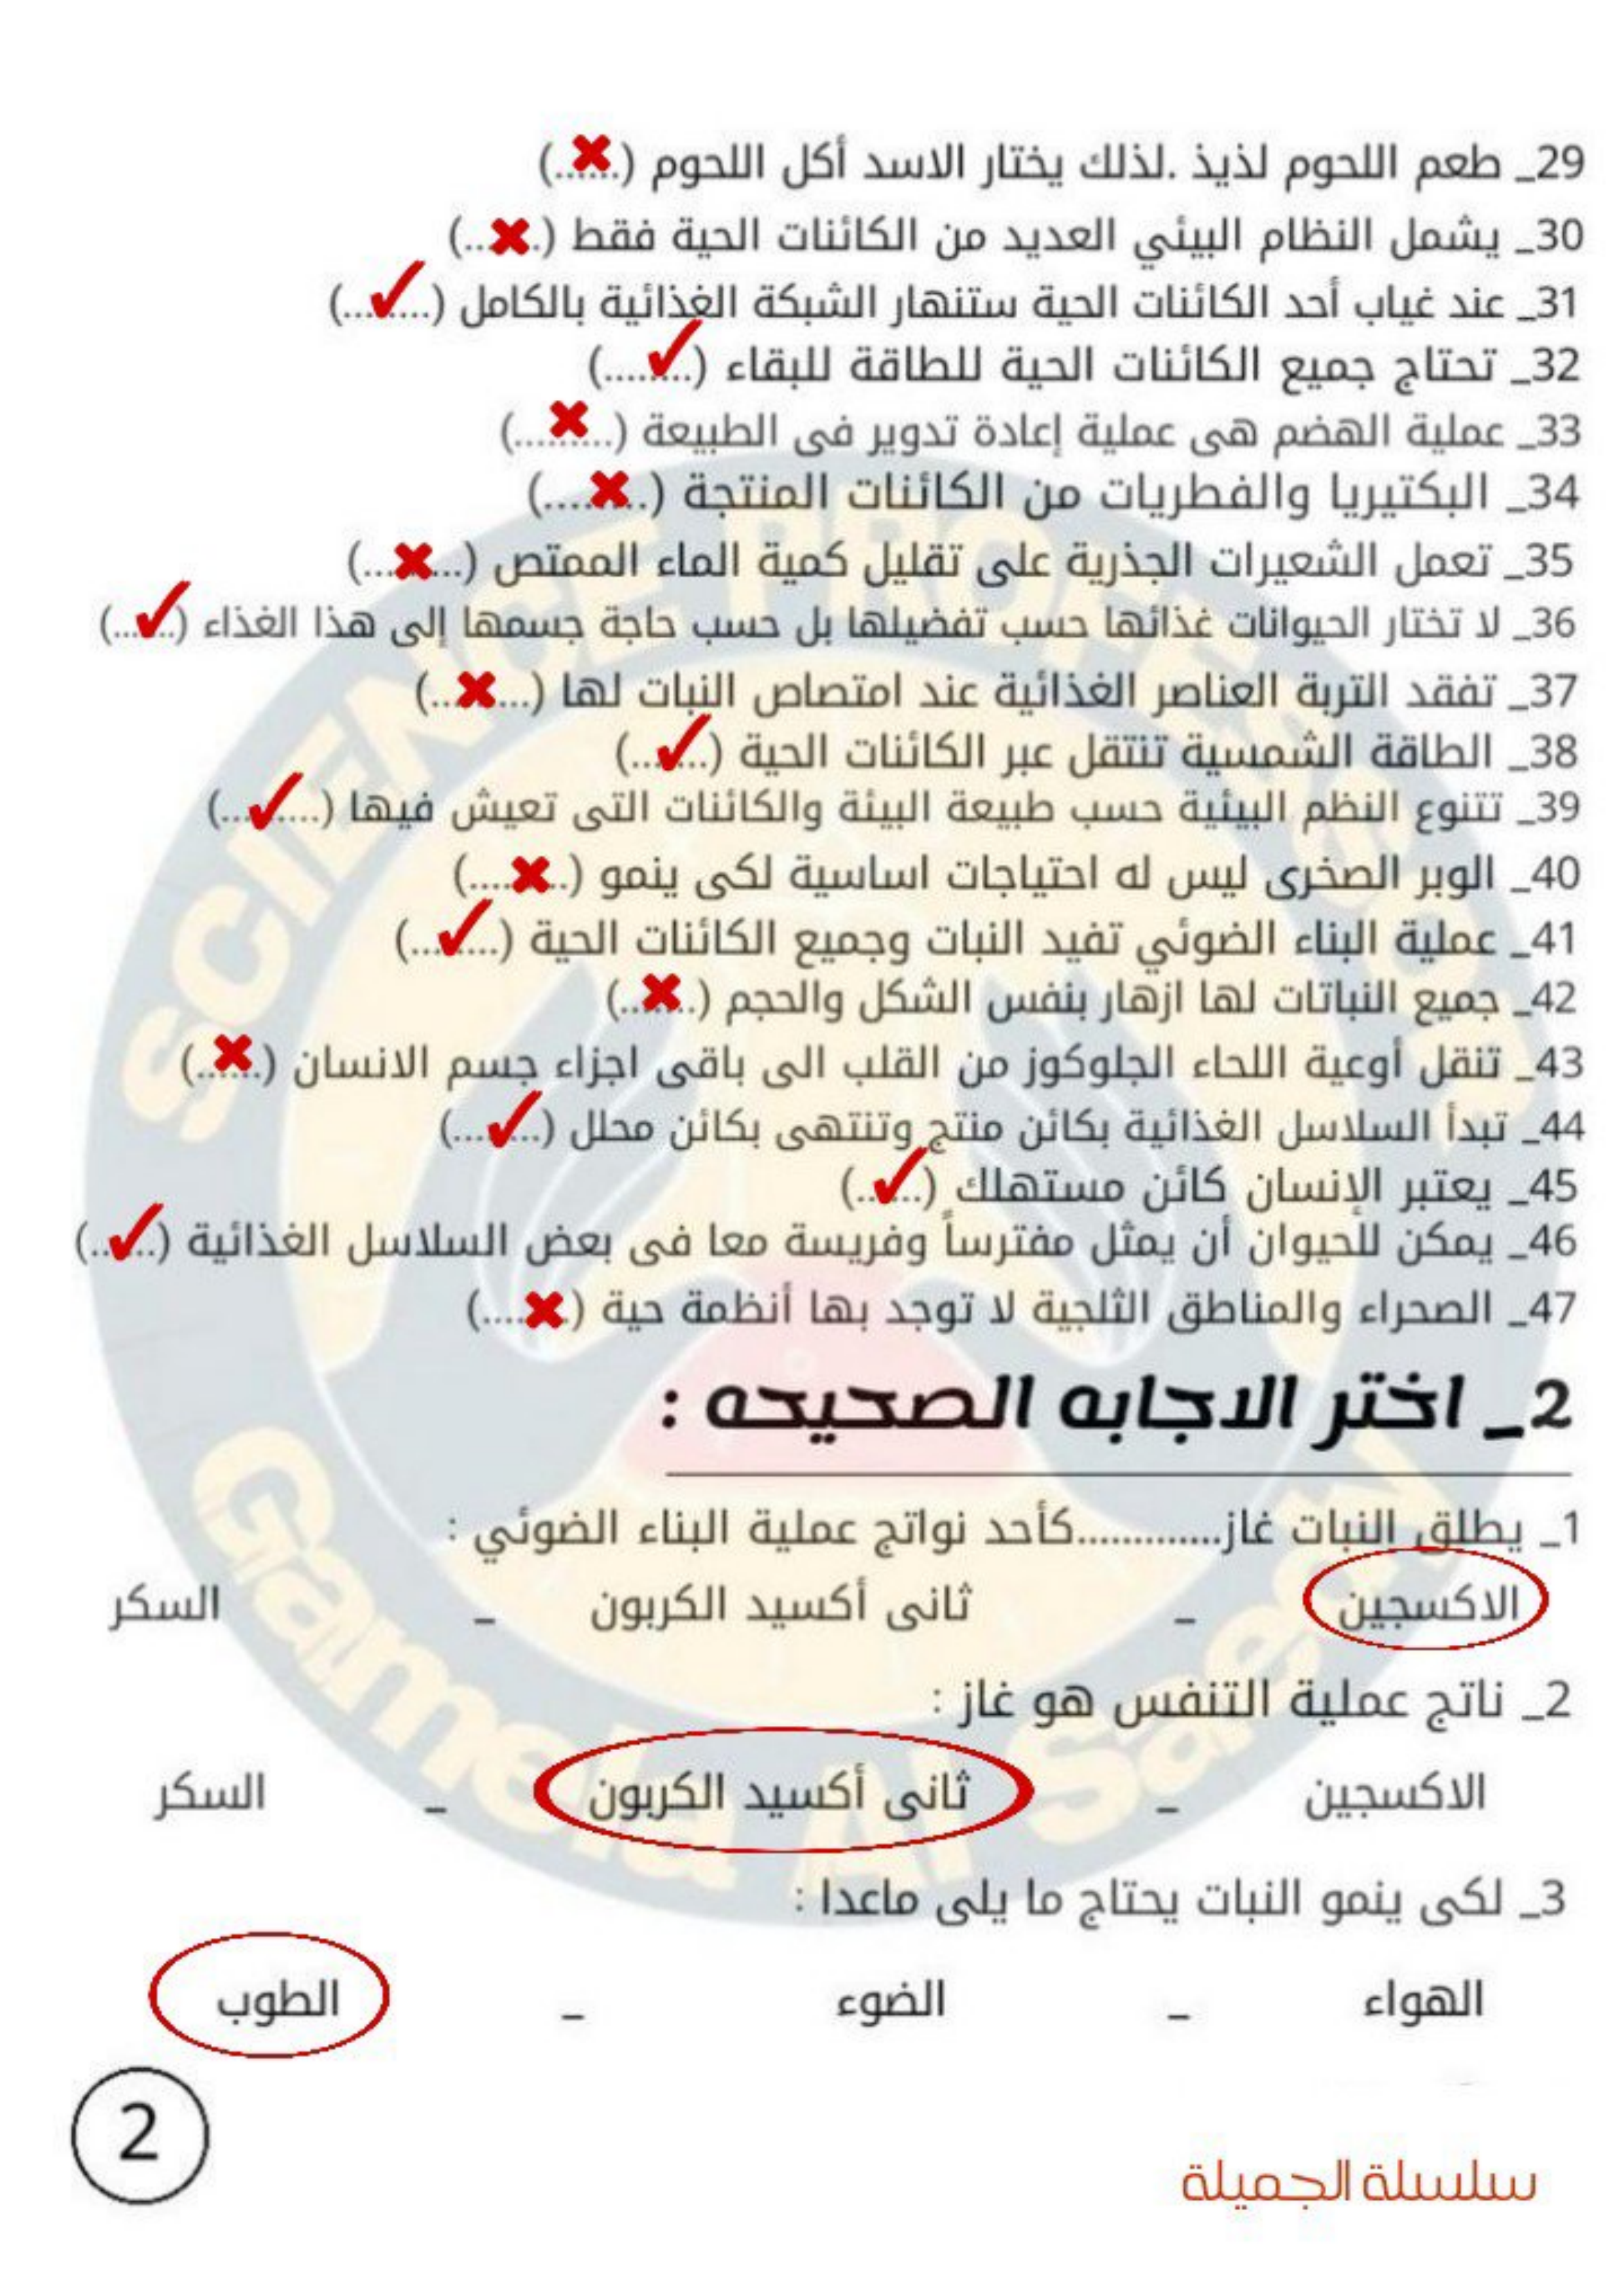 29_ طعم اللحوم لذيذ .لذلك يختار الاسد أكل اللحوم (.✖...)
30_ يشمل النظام البيئي العديد من الكائنات الحية فقط (.✖..)
31_ عند غياب أحد الكائنات الحية ستنهار الشبكة الغذائية بالكامل (...✓...)
32_ تحتاج جميع الكائنات الحية للطاقة للبقاء (..✓....)
33_ عملية الهضم هى عملية إعادة تدوير فى الطبيعة (..✖...)
34_ البكتيريا والفطريات من الكائنات المنتجة (..✖....)
35_ تعمل الشعيرات الجذرية على تقليل كمية الماء الممتص (..✖...)
36_ لا تختار الحيوانات غذائها حسب تفضيلها بل حسب حاجة جسمها إلى هذا الغذاء (.✓...)
37_ تفقد التربة العناصر الغذائية عند امتصاص النبات لها (...✖..)
38_ الطاقة الشمسية تنتقل عبر الكائنات الحية (..✓..)
39_ تتنوع النظم البيئية حسب طبيعة البيئة والكائنات التى تعيش فيها (....✓..)
40_ الوبر الصخرى ليس له احتياجات اساسية لكى ينمو (..✖....)
41_ عملية البناء الضوئي تفيد النبات وجميع الكائنات الحية (...✓...)
42_ جميع النباتات لها ازهار بنفس الشكل والحجم (.✖..)
43_ تنقل أوعية اللحاء الجلوكوز من القلب الى باقى اجزاء جسم الانسان (.✖..)
44_ تبدأ السلاسل الغذائية بكائن منتج وتنتهى بكائن محلل (..✓...)
45_ يعتبر الإنسان كائن مستهلك (..✓..)
46_ يمكن للحيوان أن يمثل مفترساً وفريسة معا فى بعض السلاسل الغذائية (..✓..)
47_ الصحراء والمناطق الثلجية لا توجد بها أنظمة حية (.✖....)
2_ اختر الاجابه الصحيحه :
1_ يطلق النبات غاز.............كأحد نواتج عملية البناء الضوئي :
الاكسجين _ ثانى أكسيد الكربون _ السكر
2_ ناتج عملية التنفس هو غاز :
الاكسجين _ ثانى أكسيد الكربون _ السكر
3_ لكى ينمو النبات يحتاج ما يلى ماعدا :
الهواء _ الضوء _ الطوب
2
سلسلة الجميلة